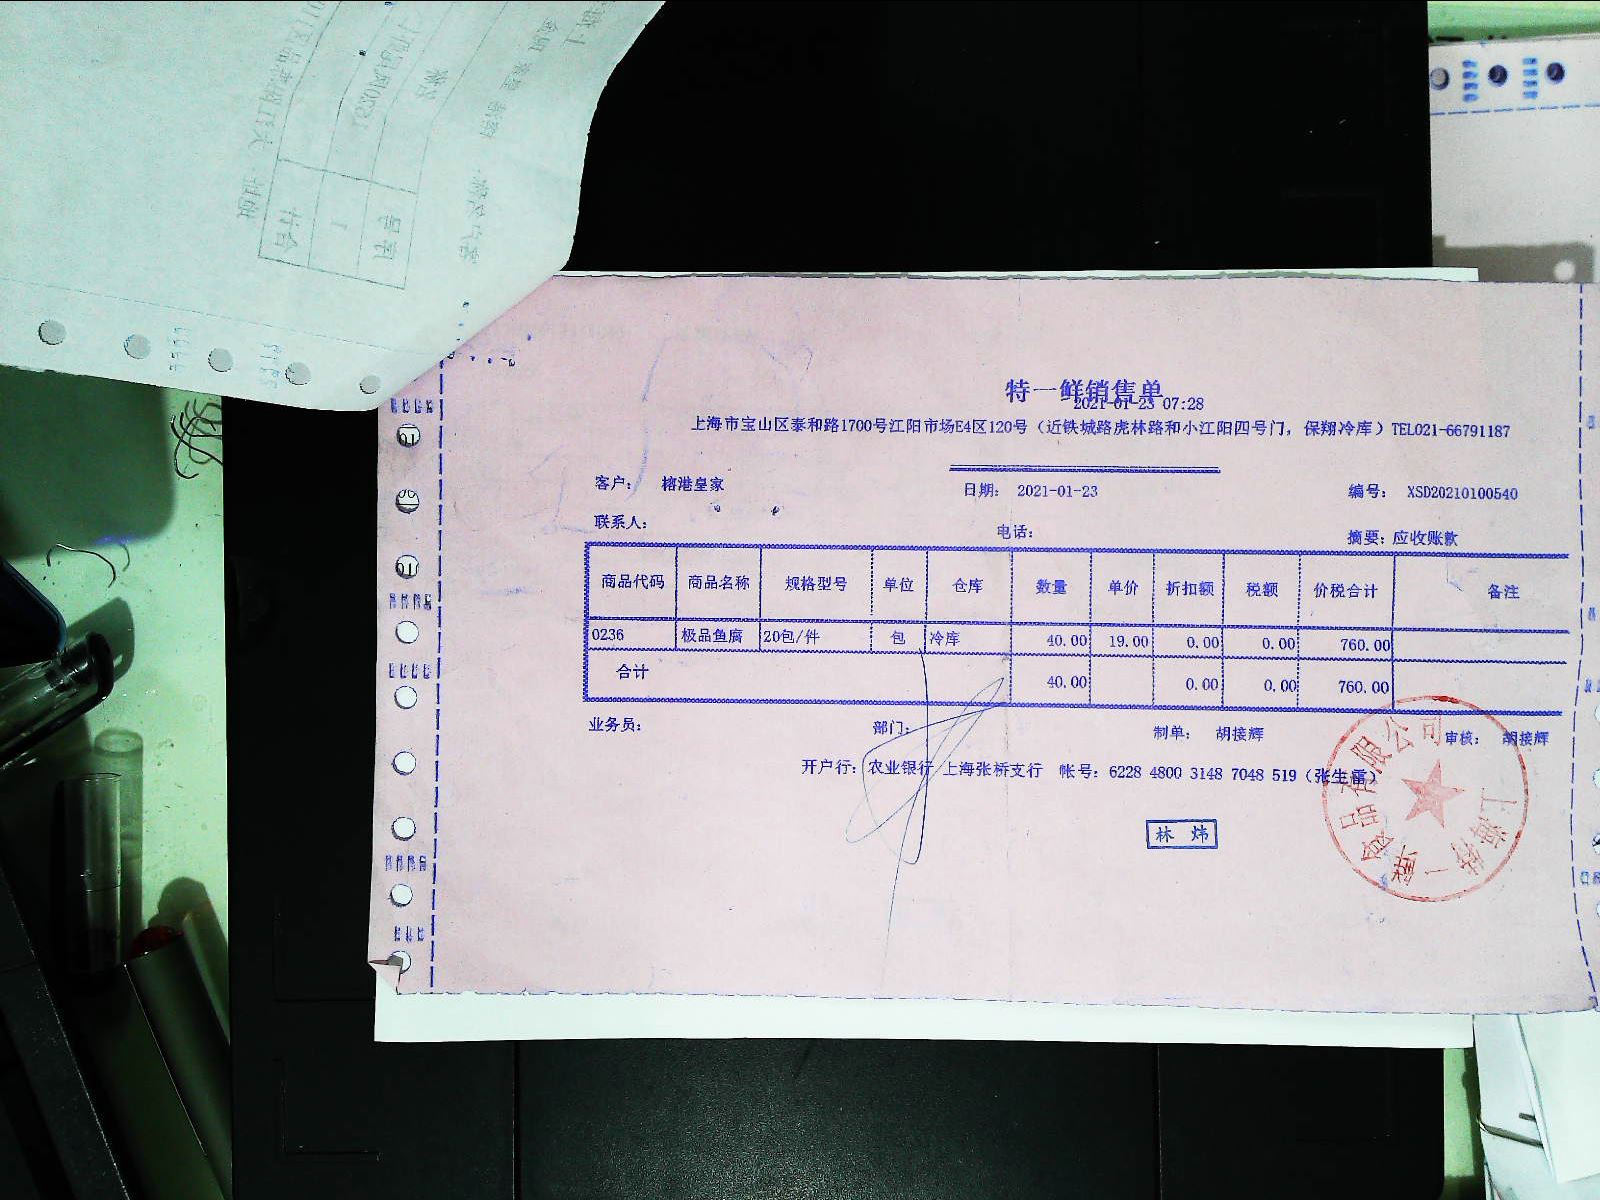 特一鲜销售单
2021-01-23 07:28
上海市宝山区泰和路1700号江阳市场E4区120号（近铁城路虎林路和小江阳四号门，保翔冷库）TEL021-66791187
客户： 榕港皇家 日期： 2021-01-23 编号： XSD20210100540
联系人： 电话： 摘要：应收账款
商品代码 商品名称 规格型号 单位 仓库 数量 单价 折扣额 税额 价税合计 备注
0236 极品鱼腐 20包/件 包 冷库 40.00 19.00 0.00 0.00 760.00
合计 40.00 0.00 0.00 760.00
业务员： 部门： 制单： 胡接辉 审核： 胡接辉
开户行：农业银行 上海张桥支行 帐号：6228 4800 3148 7048 519（张生雷）
林 炜
上海特一鲜食品有限公司